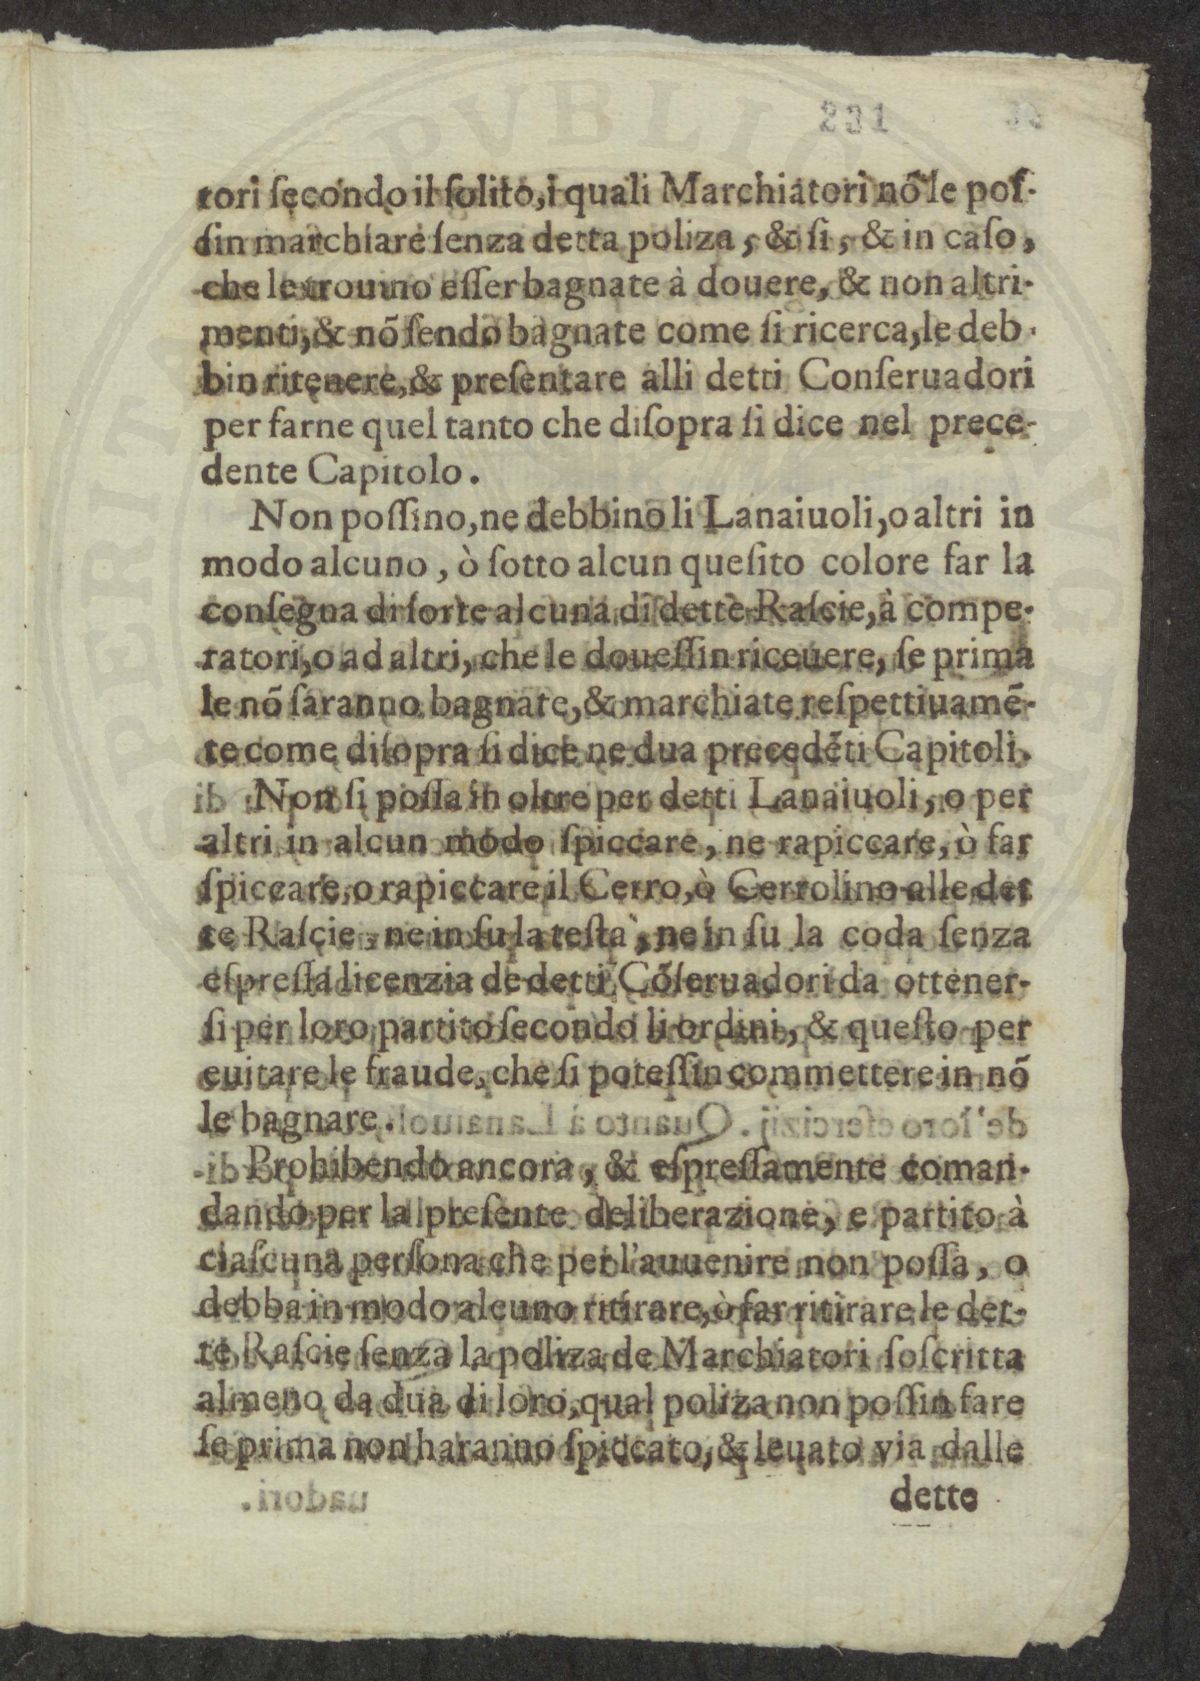 231
tori ſecondo il ſolito, i quali Marchiatori nõ le poſ-
ſin marchiare ſenza detta poliza, & ſi, & in caſo,
che le trouino eſſer bagnate à douere, & non altri-
menti, & nõ ſendo bagnate come ſi ricerca, le deb-
bin ritenere, & preſentare alli detti Conſeruadori
per farne quel tanto che diſopra ſi dice nel prece-
dente Capitolo.
Non poſſino, ne debbino li Lanaiuoli, o altri in
modo alcuno, ò ſotto alcun queſito colore far la
conſegna di ſorte alcuna di dette Raſcie, à compe-
ratori, o ad altri, che le doueſſin riceuere, ſe prima
le nõ ſaranno bagnate, & marchiate reſpettiuamẽ-
te come diſopra ſi dice ne dua precedẽti Capitoli.
Non ſi poſſa in oltre per detti Lanaiuoli, o per
altri in alcun modo ſpiccare, ne rapiccare, ò far
ſpiccare, o rapiccare il Cerro, ò Cerrolino alle det
te Raſcie, ne in ſu la teſta, ne in ſu la coda ſenza
eſpreſſa licenzia de detti Cõſeruadori da ottener-
ſi per loro partito ſecondo li ordini, & queſto per
euitare le fraude, che ſi poteſſin commettere in nõ
le bagnare.
Prohibendo ancora, & eſpreſſamente coman-
dando per la preſente deliberazione, e partito à
ciaſcuna perſona che per l'auuenire non poſſa, o
debba in modo alcuno ritirare, ò far ritirare le det-
te Raſcie ſenza la poliza de Marchiatori ſoſcritta
almeno da dua di loro, qual poliza non poſſin fare
ſe prima non haranno ſpiccato, & leuato via dalle
dette